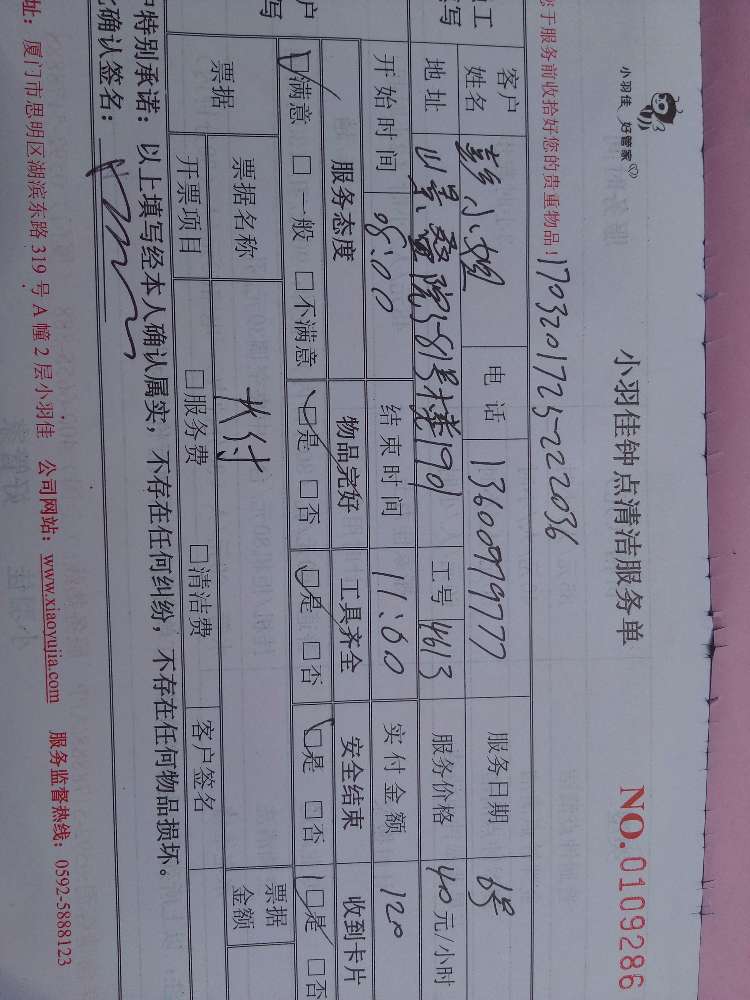 小羽佳 好管家
小羽佳钟点清洁服务单
NO.0109286
您于服务前收拾好您的贵重物品！
1703201725222036
客户姓名 彭小姐 电话 13600979777 服务日期
地址 山景叠院5-81号楼1901 工号 4613 服务价格 40元/小时
开始时间 08:00 结束时间 11:00 实付金额 120
服务态度 物品完好 工具齐全 安全结束 收到卡片
☑满意 □一般 □不满意 ☑是 □否 ☑是 □否 ☑是 □否 ☑是 □否
票据 票据名称 票据金额
开票项目 □服务费 □清洁费 客户签名
户特别承诺：以上填写经本人确认属实，不存在任何纠纷，不存在任何物品损坏。
确认签名：
址：厦门市思明区湖滨东路319号A幢2层小羽佳 公司网站：www.xiaoyujia.com 服务监督热线：0592-5888123